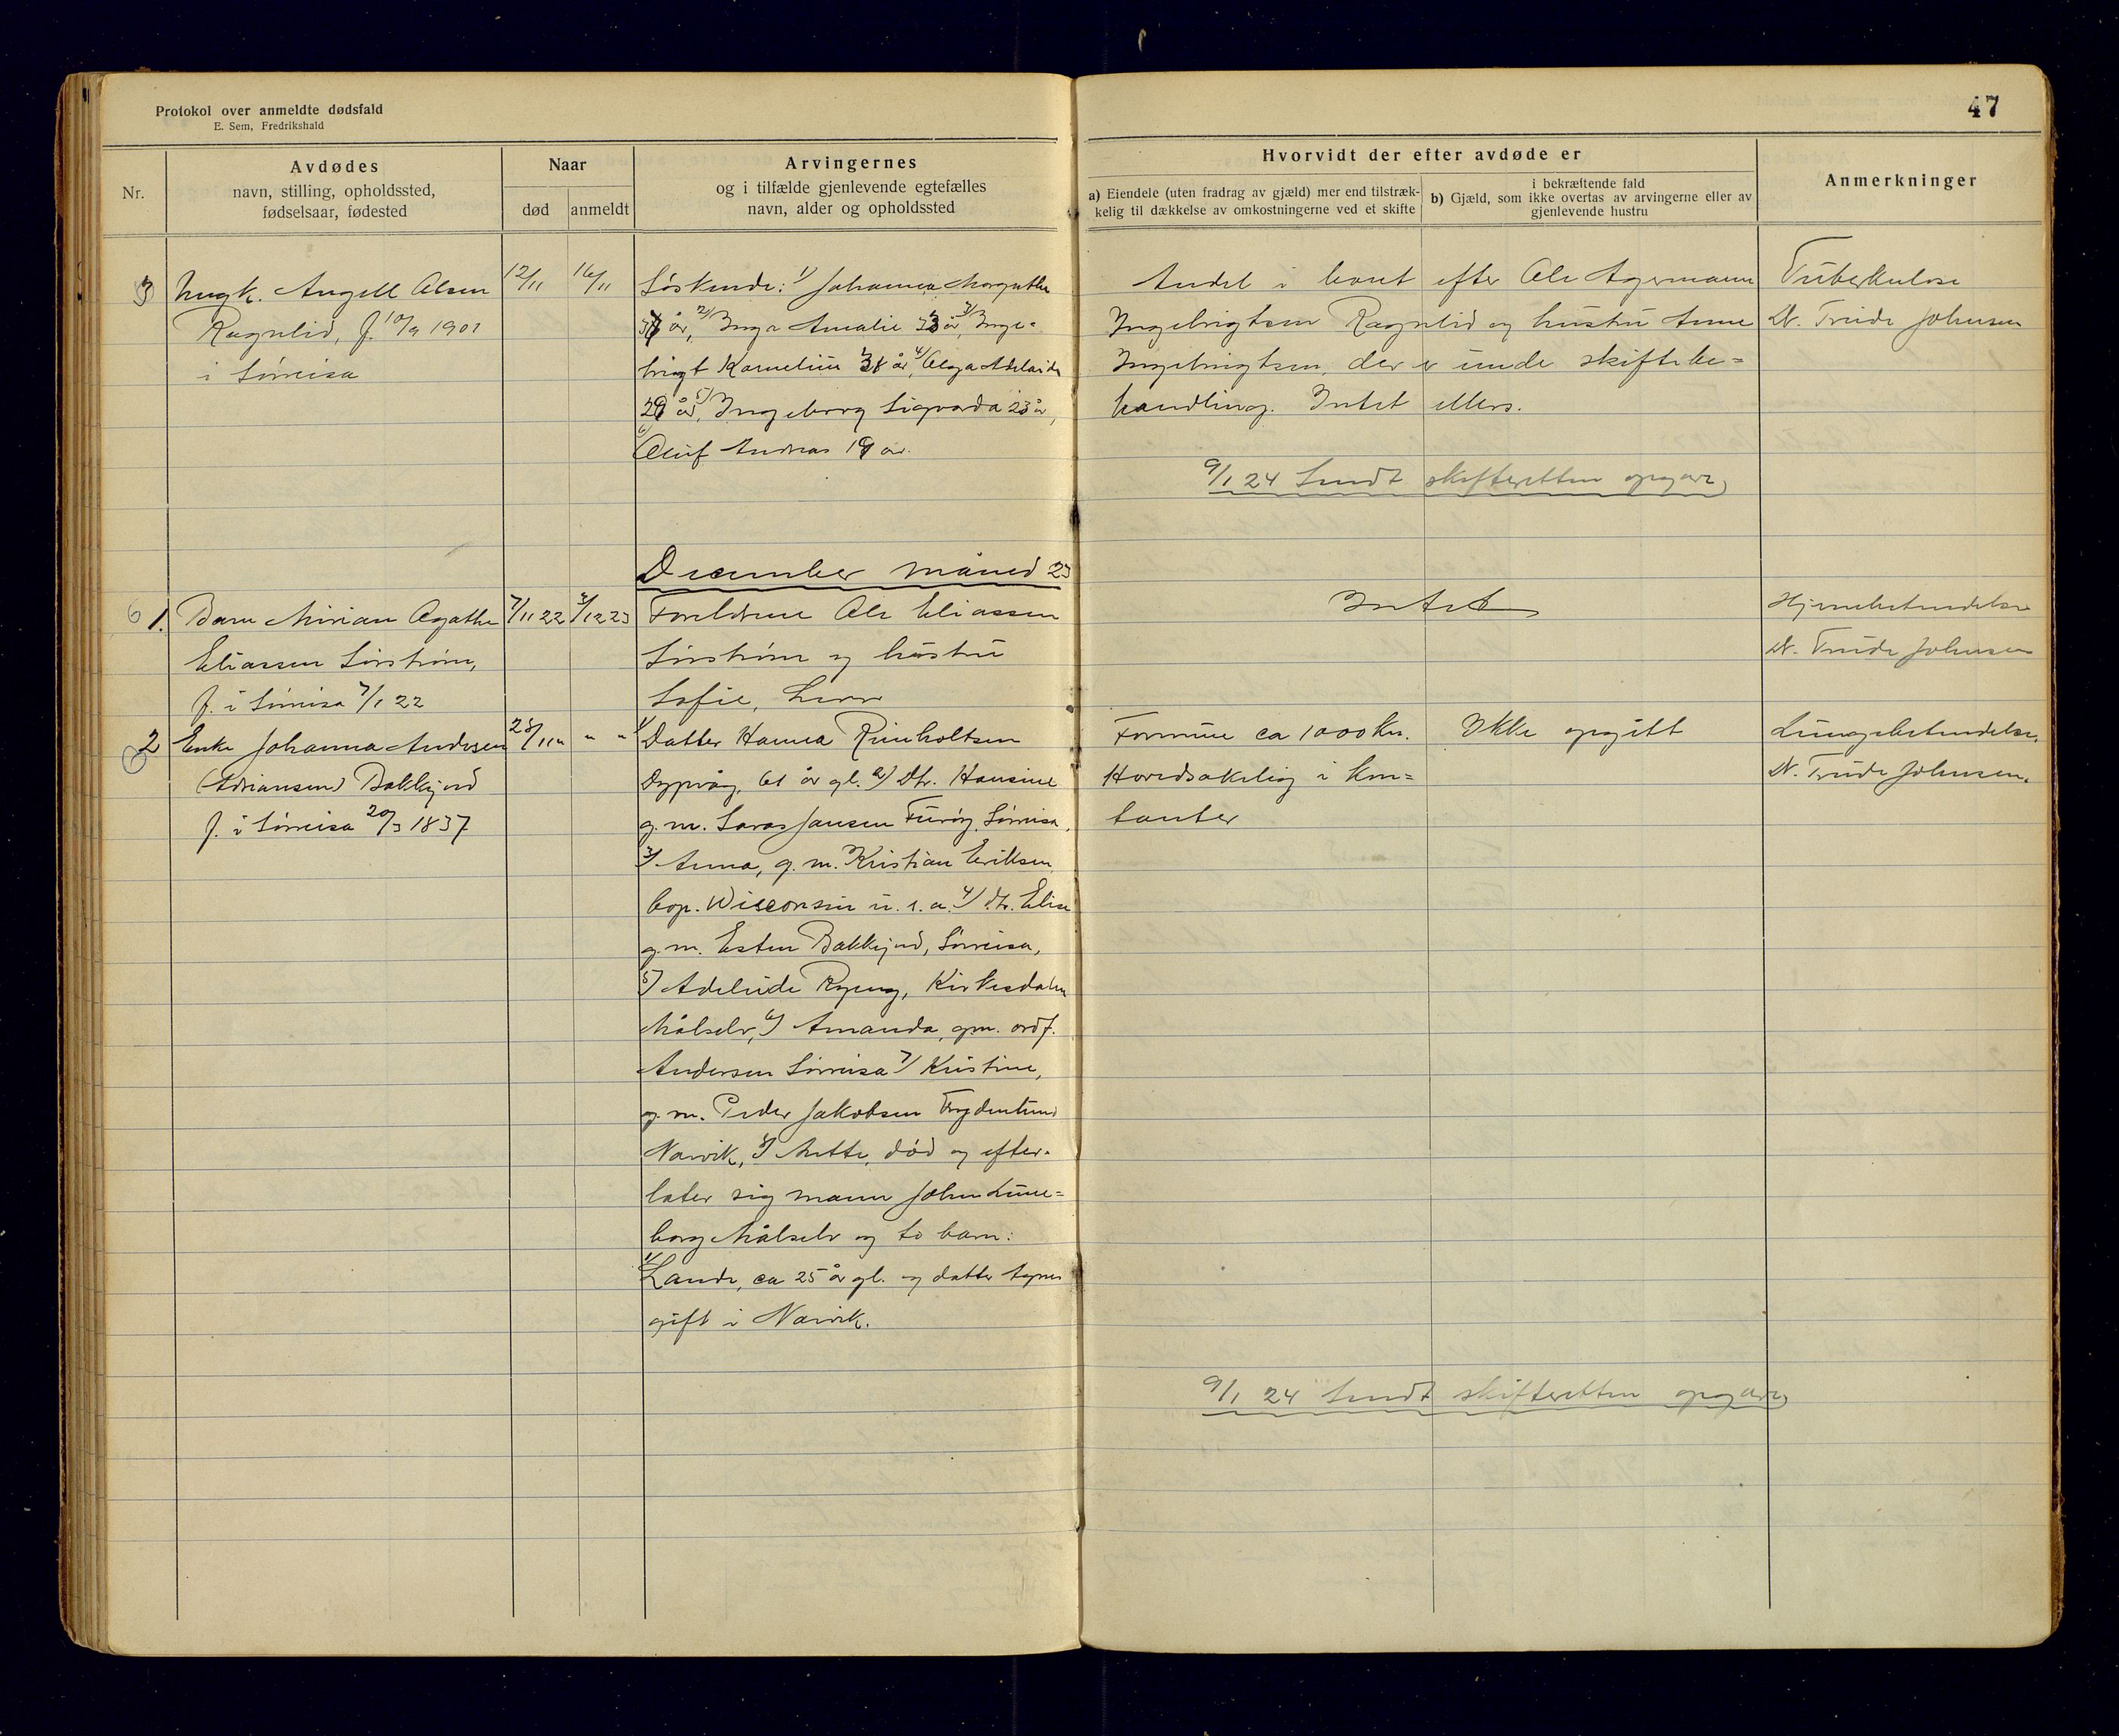 Protokol over anmeldte dødsfald
E. Sem, Fredrikshald
47
Nr.
Avdødes
navn, stilling, opholdssted,
fødselsaar, fødested
Naar
død
anmeldt
Arvingernes
og i tilfælde gjenlevende egtefælles
navn, alder og opholdssted
Hvorvidt der efter avdøde er
a) Eiendele (uten fradrag av gjæld) mer end tilstræk-
kelig til dækkelse av omkostningerne ved et skifte
i bekræftende fald
b) Gjæld, som ikke overtas av arvingerne eller av
gjenlevende hustru
Anmerkninger
3
Ungk. Angell Olsen
Ragnlid, f. 10/9 1901
i Sørreisa
12/11
16/11
Søskende: 1) Johanna Margrethe
37 år, 2) Inga Amalie 33 år, 3) Inge-
brigt Kornelius 38 år, 4) Olga Adelaide
29 år, 5) Ingeborg Sigvarda 23 år,
6) Oluf Andreas 19 år.
Andel i boet efter Ole Agermann
Ingebrigtsen Ragnlid og hustru Anne
Ingebrigtsen, der er unde skiftebe=
handling. Intet ellers.
9/1 24 Sendt skifteretten opgave
Tuberkulose
N. Trude Johnsen
December måned 23
6
1.
Barn Mirian Agathe
Eliassen Sørstrøm,
f. i Sørreisa 7/1 22
7/11 22
3/12 23
Foreldrene Ole Eliassen
Sørstrøm og hustru
Sofie,
Intet
Hjernebetendelse
N. Trude Johnsen
6
2
Enke Johanna Andersen
(Adriansen) Bakkejord
f. i Sørreisa 20/3 1837
28/11 "
" "
1) Datter Hanna Rinholtsen
Dypvåg, 61 år gl. 2) Dtr. Hansine
g. m. Lars Jansen Furøy, Sørreisa,
3) Anna, g. m. Kristian Eriksen
bop. Wisconsin u. s. a. 4) dtr. Elise
g. m. Esten Bakkejord, Sørreisa,
5) Adeleide Ryeng, Kirkesdalen
Målselv, 6) Amanda, gm. ordf.
Andersen Sørreisa 7) Kristine,
g. m. Peder Jakobsen Frydenlund
Narvik, 8) Mette, død og efter-
later sig mann John Lune=
borg Målselv og to barn:
1) Lande, ca 25 år gl. og datter Agnes
gift i Narvik.
Formue ca 1000 kr.
Hovedsakelig i kon=
tanter
Ikke opgitt
Lungebetendelse.
N. Trude Johnsen.
9/1 24 Sendt skifteretten opgave